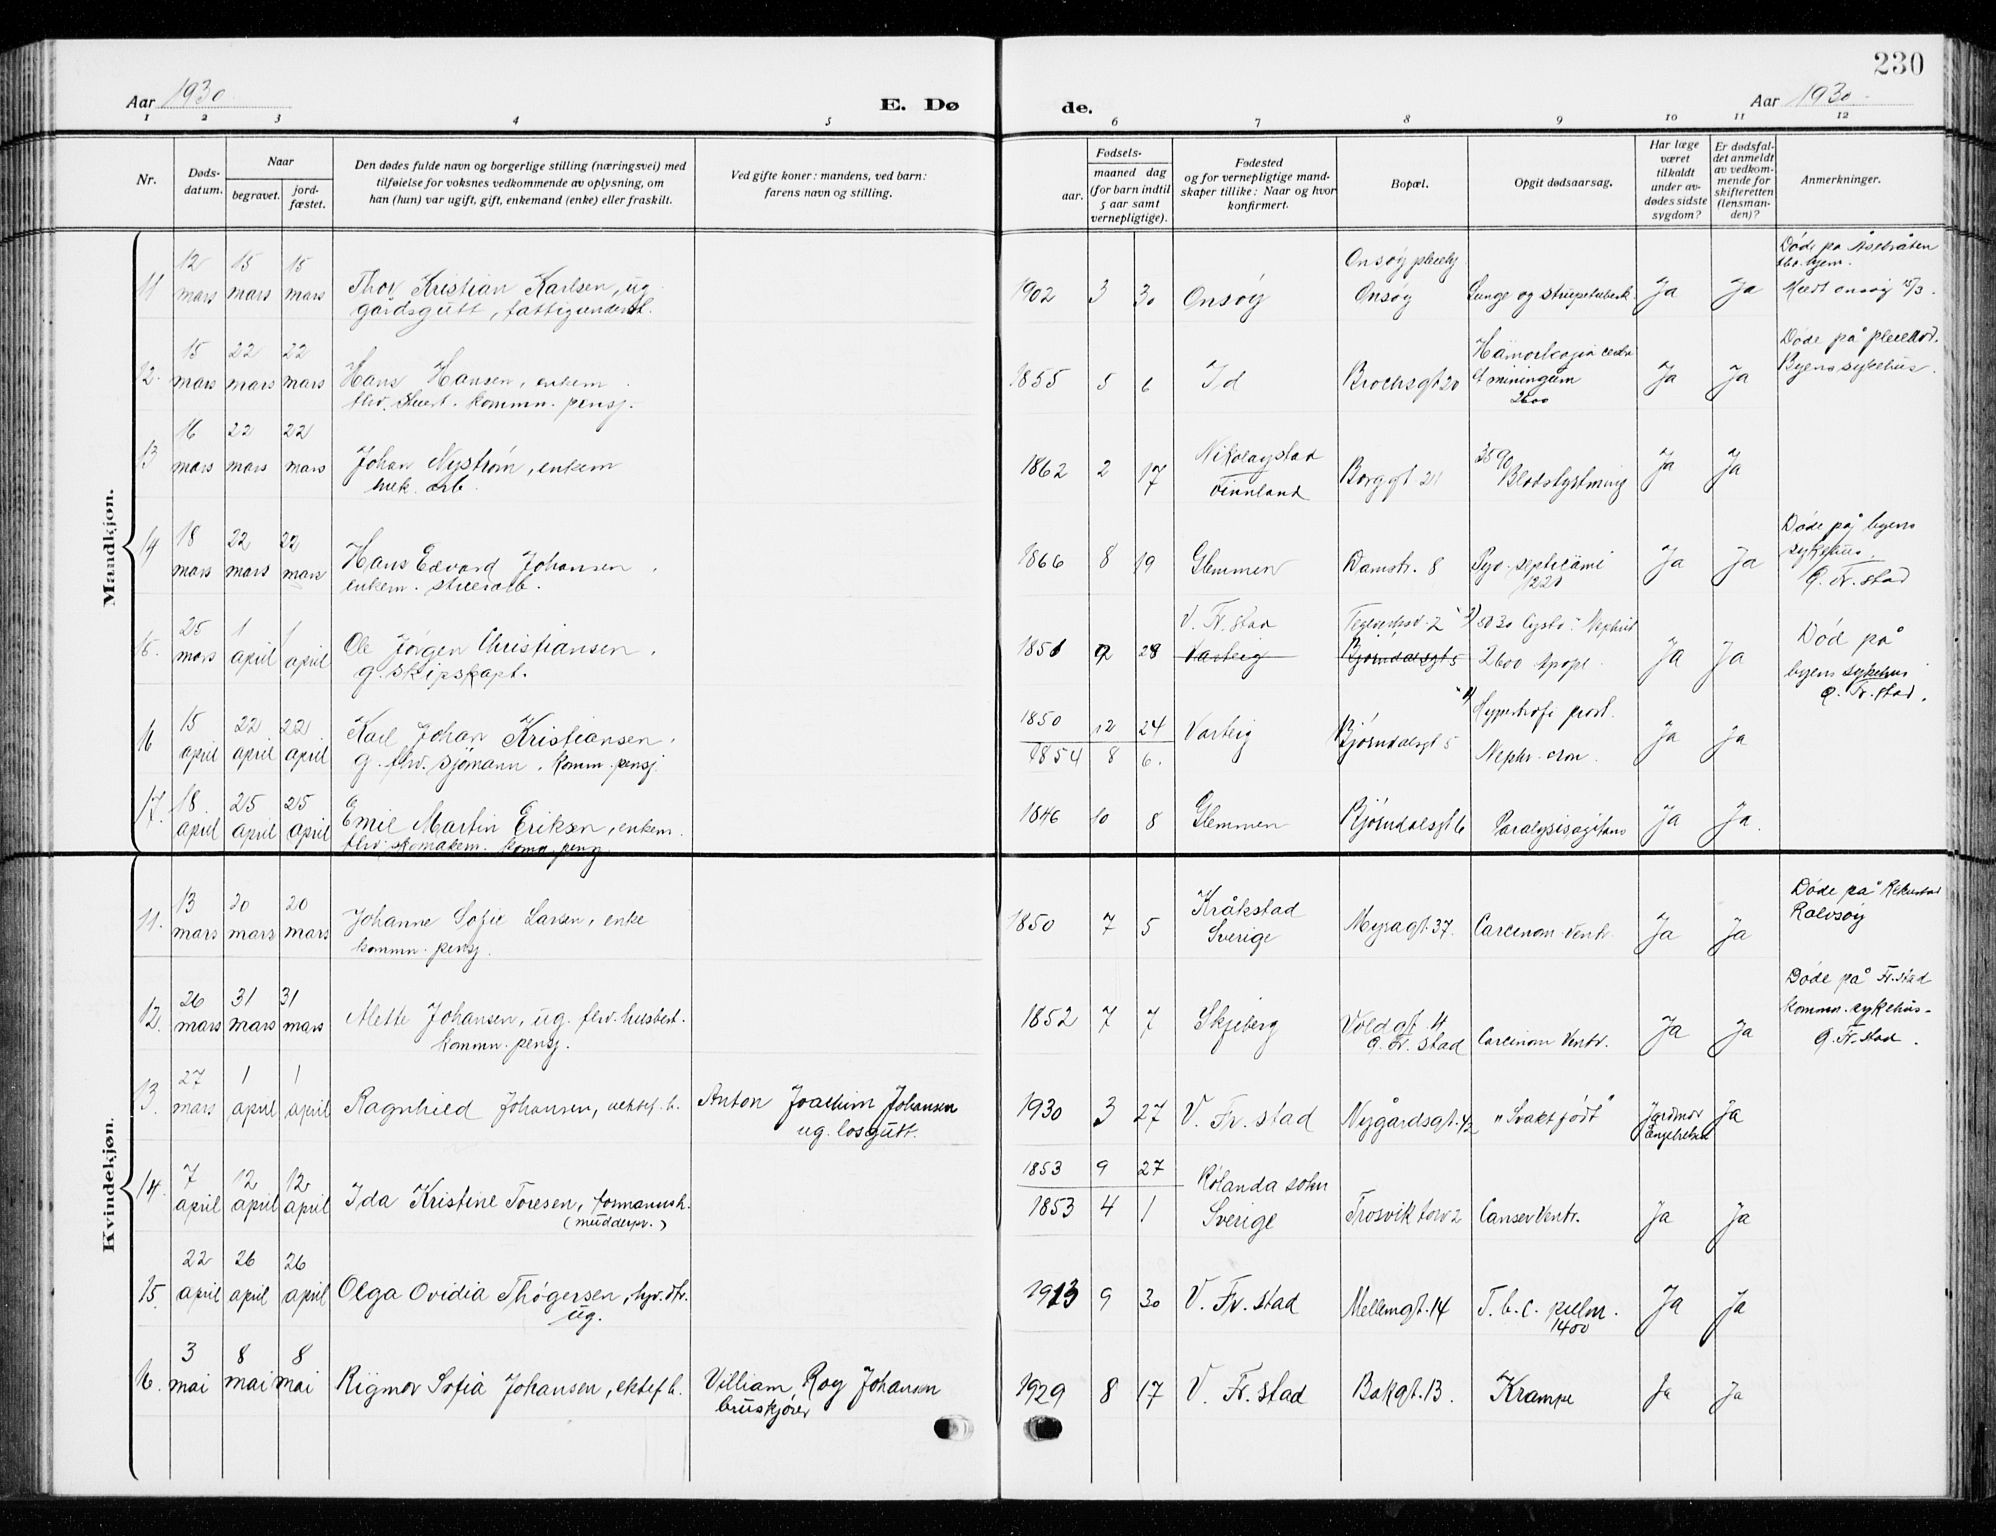 230
Aar 1930
E. Dø
de.
Aar 1930
1 2 3 4 5 6 7 8 9 10 11 12
Nr.
Døds-
datum.
Naar
begravet.
jord-
fæstet.
Den dødes fulde navn og borgerlige stilling (næringsvei) med
tilføielse for voksnes vedkommende av oplysning, om
han (hun) var ugift, gift, enkemand (enke) eller fraskilt.
Ved gifte koner: mandens, ved barn:
farens navn og stilling.
Fødsels-
aar.
maaned dag
(for barn indtil
5 aar samt
vernepligtige).
Fødested
og for vernepligtige mand-
skaper tillike: Naar og hvor
konfirmert.
Bopæl.
Opgit dødsaarsag.
Har læge
været
tilkaldt
under av-
dødes sidste
sygdom?
Er dødsfal-
det anmeldt
av vedkom-
mende for
skifteretten
(lensman-
den)?
Anmerkninger.
Mandkjøn.
11 12 mars 15 mars 15 mars Thor Kristian Karlsen, ug.
gårdsgutt, fattigunderst.
1902 3 30 Onsøy Onsøy pleiehj
Onsøy Lunge og strupetuberk. Ja Ja Døde på
hjem.
Medt onsøy 15/3.
12. 15 mars 22 mars 22 mars Hans Hansen, enkem.
fhv. stuert. kommn. pensj.
1855 5 6 Id Brochsgt 20
2600 Ja Ja Døde på
Byens sykehus.
13 16 mars 22 mars 22 mars Johan Nystrøm, enkem
bruk. arb.
1862 2 17 Nikolaystad
Finnland Borggt 21 Blodstyrtning Ja Ja
14 18 mars 22 mars 22 mars Hans Edvard Johansen,
enkem. stuerarb.
1866 8 19 Glemmen Damstr. 8 Pyo-septicämi
1220 Ja Ja Døde på byens
sykehus.
G. Fr. stad
15. 25 mars 1 april 1 april Ole Jørgen Christiansen,
g. skipskapt.
1851 9 28 V. Fr. stad
Varteig Teglverksv. 2
Bjørndalsgt 5 Cysto-Nephrit
2600 Apopl. Ja Ja Død på
byens sykehus
G. Fr. stad.
16 15 april 22 april 22 april Karl Johan Kristiansen,
g. fhv. sjømann. komm. pensj.
1850 12 24
1854 8 6. Varteig Bjørndalsgt 5 Hypertrofi prost.
Nephr. cron. Ja Ja
17. 18. april 25 april 25 april Emil Martin Eriksen, enkem.
fhv. skomakerm. komn. pensj.
1846 10 8 Glemmen Bjørndalsgt 6 Paralysis agitans Ja Ja.
Kvindekjøn.
11. 13 mars 20 mars 20 mars Johanne Sofie Larsen, enke
kommn. pensj.
1850 7 5 Kråkstad
Sverige Myragt. 37. Carcinom ventr. Ja Ja Døde på
Rolvsøy
12. 26 mars 31 mars 31 mars Alette Johansen, ug. fhv. husbest.
kommn. pensj.
1852 7 7 Skjeberg Voldgt. 4
G. Fr. stad Carcinom Ventr. Ja Ja Døde på Fr. stad
kommn. sykehus-
G. Fr. stad.
13. 27 mars 1 april 1 april Ragnhild Johansen, uektef. b. Anton Joachim Johansen
ug. losgutt.
1930 3 27 V. Fr. stad Nygårdsgt. 42 "Svakt født" Jordmor
Engebretsen Ja
14. 7 april 12 april 12 april Ida Kristine Toresen, formannsh.
(mudderpr.)
1853 9 27
1853 4 1 Rølanda sokn
Sverige Trosvik torv 2 Canser Ventr. Ja Ja
15. 22 april 26 april 26 april Olga Ovidia Thøgersen, hjv. dtr.
ug.
1913 9 30 V. Fr. stad Mellemgt. 14 T. b. c. pulm.
1400 Ja Ja
16. 3 mai 8 mai 8 mai Rigmor Sofia Johansen, ektef b. Villiam Roy Johansen
bruskjører
1929 8 17 V. Fr. stad Bakgt. 13. Krampe Ja Ja